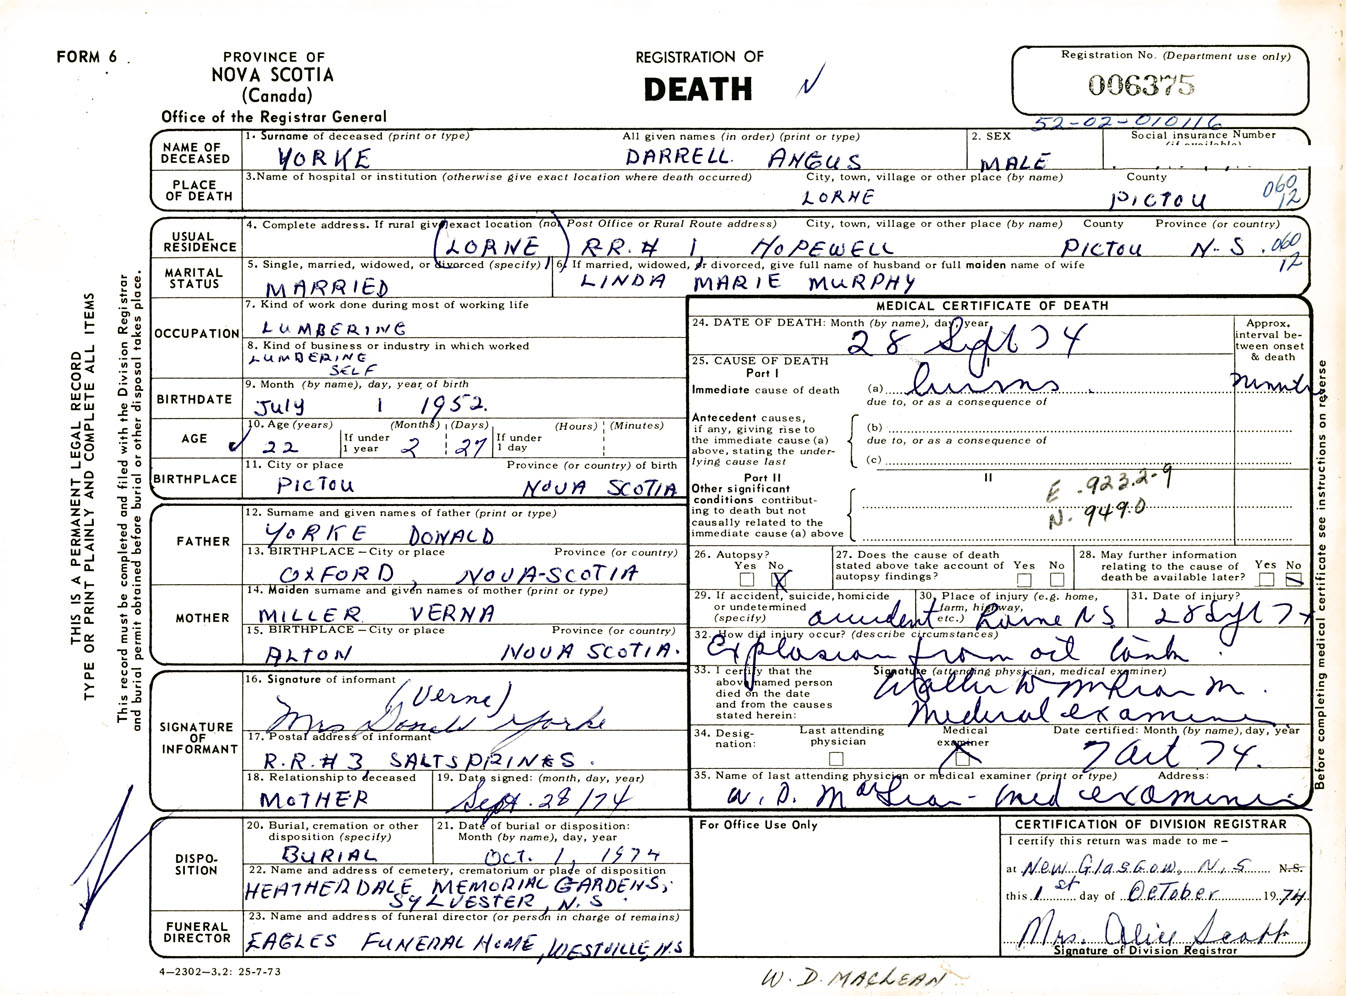 FORM 6
PROVINCE OF
NOVA SCOTIA
(Canada)
Office of the Registrar General
REGISTRATION OF
DEATH
Registration No. (Department use only)
006375
52-02-010116
NAME OF DECEASED
1. Surname of deceased (print or type) All given names (in order) (print or type) 2. SEX Social insurance Number
YORKE DARRELL ANGUS MALE
PLACE OF DEATH
3. Name of hospital or institution (otherwise give exact location where death occurred) City, town, village or other place (by name) County
LORNE PICTOU 060 12
USUAL RESIDENCE
4. Complete address. If rural give exact location (not Post Office or Rural Route address) City, town, village or other place (by name) County Province (or country)
(LORNE) R.R.# 1 HOPEWELL PICTOU N.S. 060 12
MARITAL STATUS
5. Single, married, widowed, or divorced (specify) 6. If married, widowed, or divorced, give full name of husband or full maiden name of wife
MARRIED LINDA MARIE MURPHY
OCCUPATION
7. Kind of work done during most of working life
LUMBERING
8. Kind of business or industry in which worked
LUMBERING
SELF
BIRTHDATE
9. Month (by name), day, year of birth
July 1 1952.
AGE
10. Age (years) (Months) (Days) (Hours) (Minutes)
If under 1 year If under 1 day
22 2 27
BIRTHPLACE
11. City or place Province (or country) of birth
PICTOU NOVA SCOTIA
FATHER
12. Surname and given names of father (print or type)
YORKE DONALD
13. BIRTHPLACE – City or place Province (or country)
OXFORD, NOVA-SCOTIA
MOTHER
14. Maiden surname and given names of mother (print or type)
MILLER VERNA
15. BIRTHPLACE – City or place Province (or country)
ALTON NOVA SCOTIA.
SIGNATURE OF INFORMANT
16. Signature of informant
(Verne)
Mrs Donald Yorke
17. Postal address of informant
R.R.#3, SALTSPRINGS.
18. Relationship to deceased 19. Date signed: (month, day, year)
MOTHER Sept. 28/74
DISPOSITION
20. Burial, cremation or other disposition (specify) 21. Date of burial or disposition: Month (by name), day, year
BURIAL OCT. 1, 1974
22. Name and address of cemetery, crematorium or place of disposition
HEATHERDALE MEMORIAL GARDENS,
SYLVESTER, N.S.
FUNERAL DIRECTOR
23. Name and address of funeral director (or person in charge of remains)
EAGLES FUNERAL HOME, WESTVILLE, N.S
4–2302–3.2: 25-7-73
MEDICAL CERTIFICATE OF DEATH
24. DATE OF DEATH: Month (by name), day, year
28 Sept 74
Approx. interval between onset & death
25. CAUSE OF DEATH
Part I
I
Immediate cause of death (a) burns
due to, or as a consequence of
Antecedent causes, if any, giving rise to the immediate cause (a) above, stating the underlying cause last
(b)
due to, or as a consequence of
(c)
Part II
II
Other significant conditions contributing to death but not causally related to the immediate cause (a) above
E .923.2-9
N. 949.0
26. Autopsy? Yes No
27. Does the cause of death stated above take account of autopsy findings? Yes No
28. May further information relating to the cause of death be available later? Yes No
29. If accident, suicide, homicide or undetermined (specify) 30. Place of injury (e.g. home, farm, highway, etc.) 31. Date of injury?
accident Lorne NS 28 Sept 74
32. How did injury occur? (describe circumstances)
Explosion from oil tank.
33. I certify that the above named person died on the date and from the causes stated herein:
Signature (attending physician, medical examiner)
Medical examiner
34. Designation: Last attending physician Medical examiner Date certified: Month (by name), day, year
7 Oct 74.
35. Name of last attending physician or medical examiner (print or type) Address:
W. D. MacLean - med examiner
For Office Use Only
CERTIFICATION OF DIVISION REGISTRAR
I certify this return was made to me –
at New Glasgow, N.S N.S.
this 1st day of October 1974
Mrs. Alice Scott
Signature of Division Registrar
W. D. MACLEAN
THIS IS A PERMANENT LEGAL RECORD
TYPE OR PRINT PLAINLY AND COMPLETE ALL ITEMS
This record must be completed and filed with the Division Registrar
and burial permit obtained before burial or other disposal takes place.
Before completing medical certificate see instructions on reverse